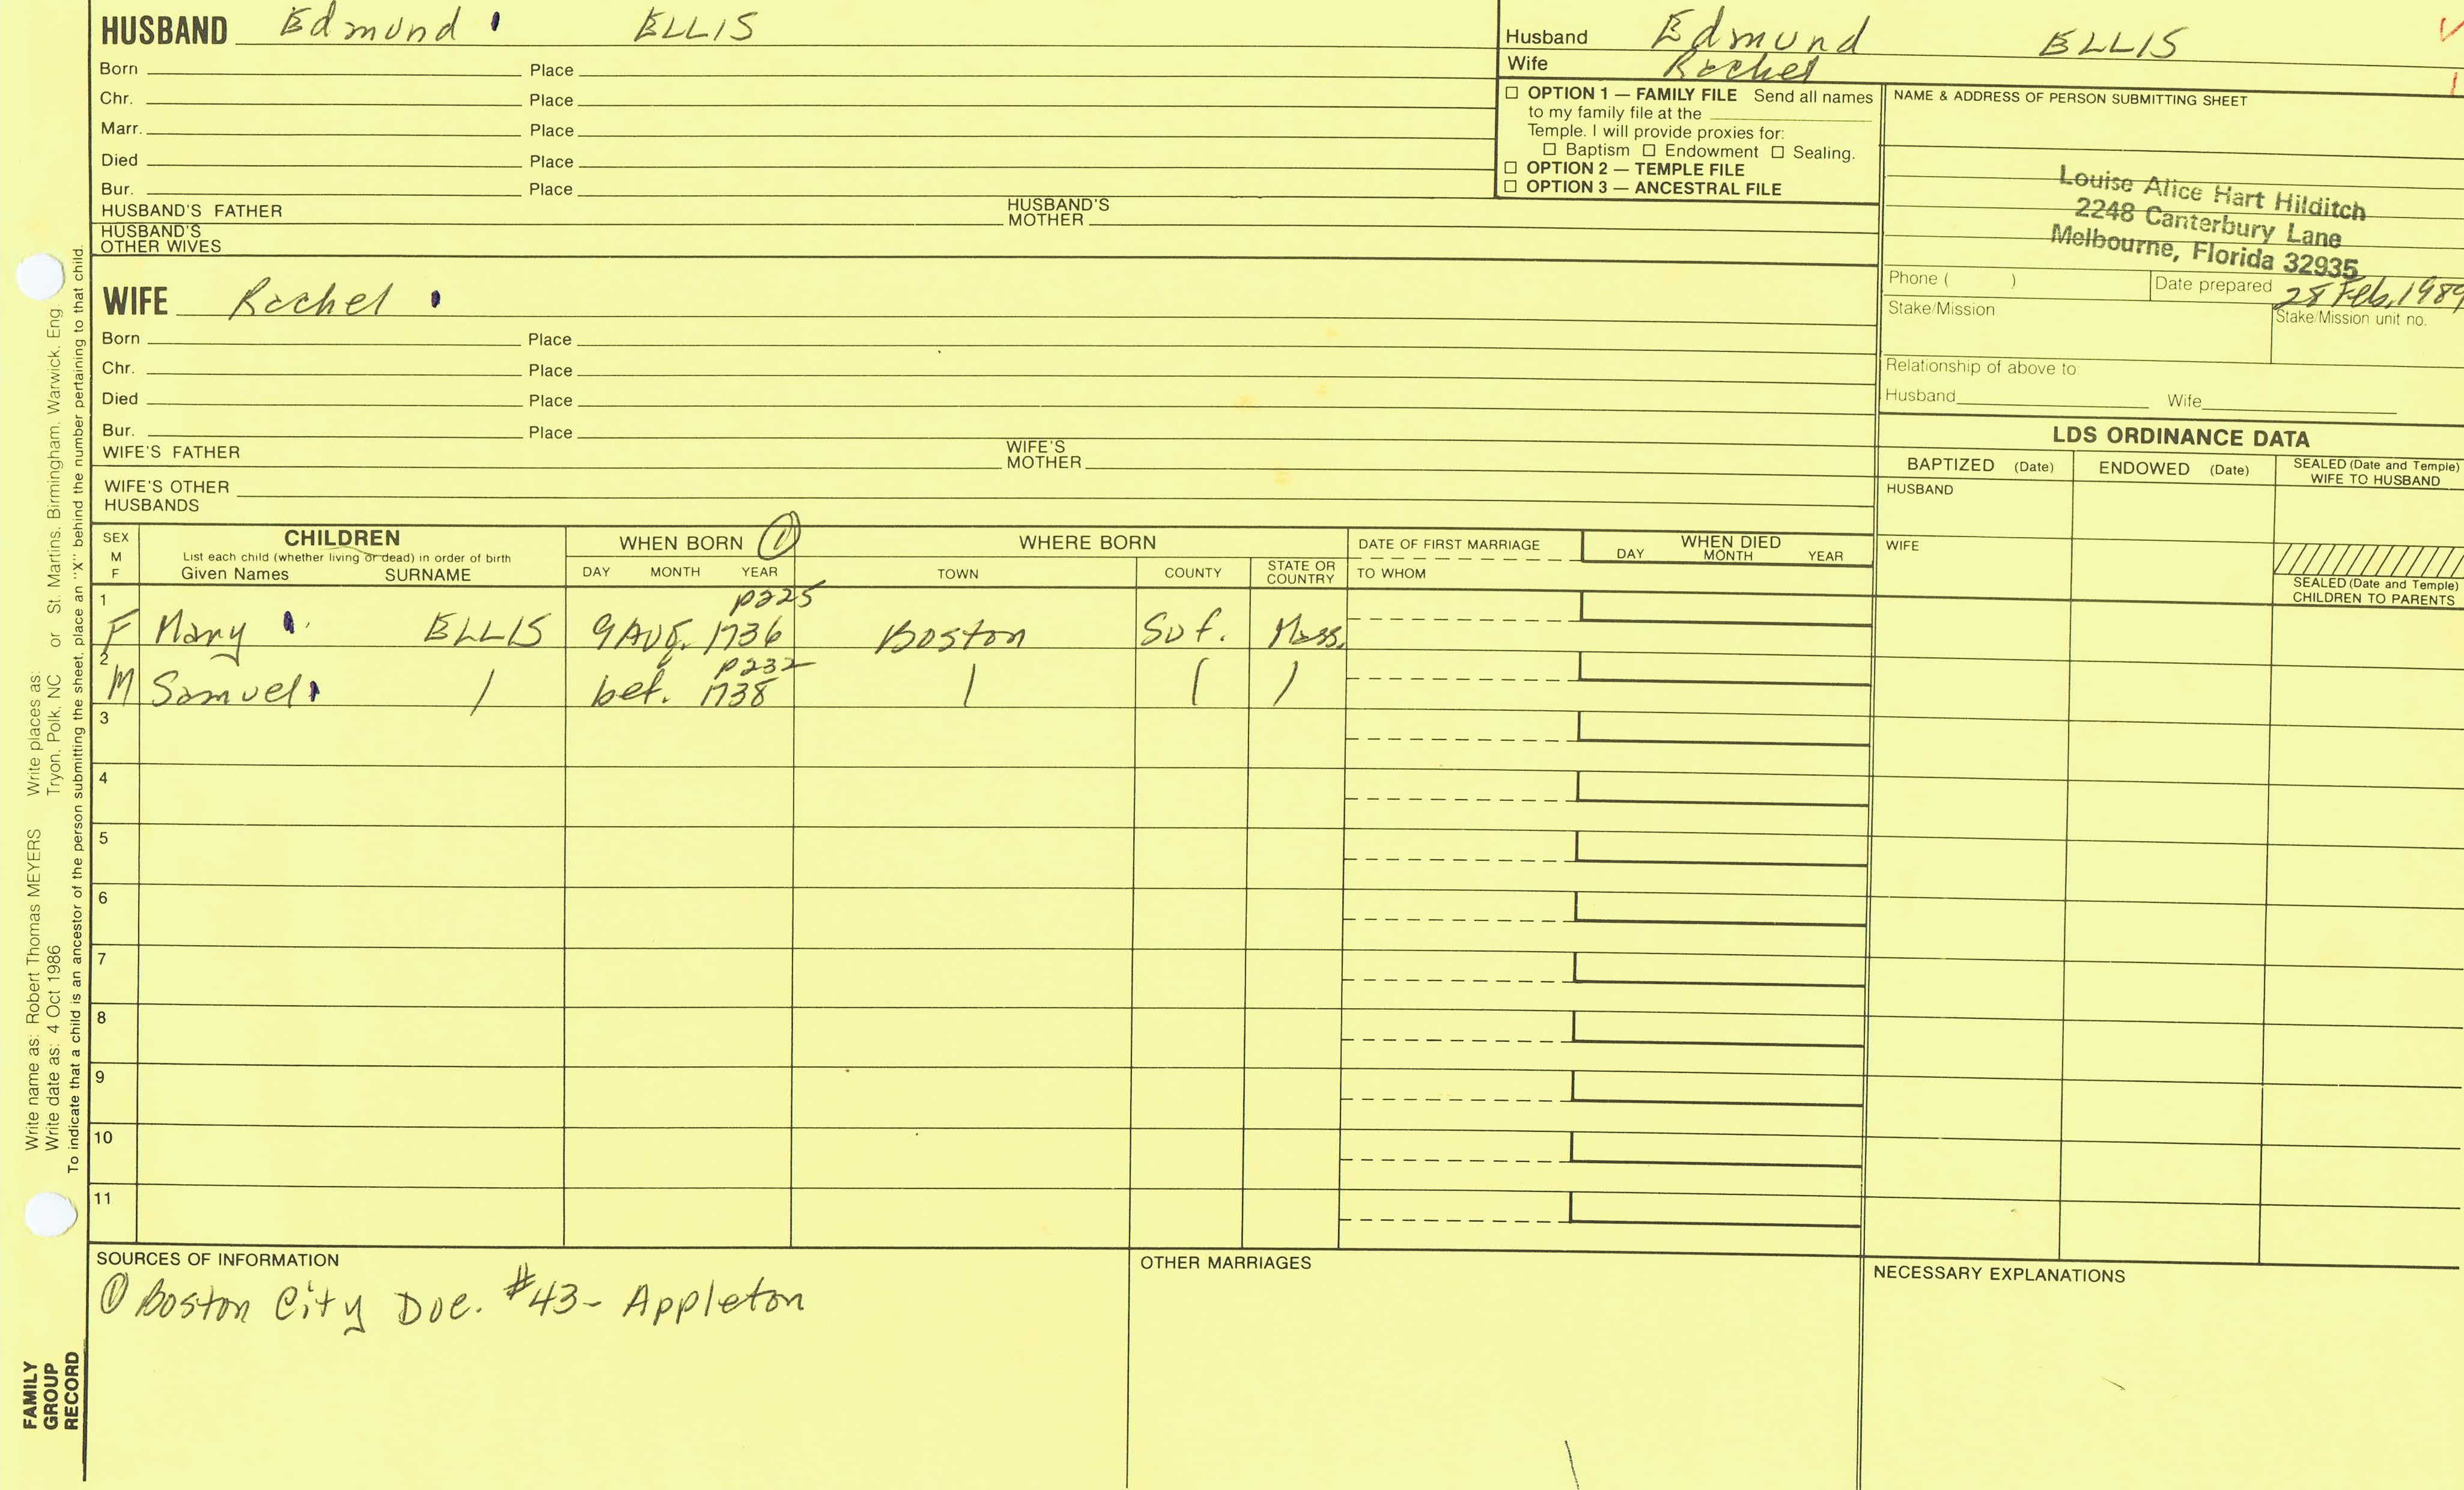 HUSBAND Edmund ELLIS
Born Place
Chr. Place
Marr. Place
Died Place
Bur. Place
HUSBAND'S FATHER HUSBAND'S MOTHER
HUSBAND'S OTHER WIVES
WIFE Rachel
Born Place
Chr. Place
Died Place
Bur. Place
WIFE'S FATHER WIFE'S MOTHER
WIFE'S OTHER HUSBANDS
Husband Edmund ELLIS
Wife Rachel
OPTION 1 — FAMILY FILE Send all names
to my family file at the
Temple. I will provide proxies for:
Baptism Endowment Sealing.
OPTION 2 — TEMPLE FILE
OPTION 3 — ANCESTRAL FILE
NAME & ADDRESS OF PERSON SUBMITTING SHEET
Louise Alice Hart Hilditch
2248 Canterbury Lane
Melbourne, Florida 32935
Phone ( ) Date prepared 28 Feb, 1989
Stake/Mission Stake/Mission unit no.
Relationship of above to:
Husband Wife
LDS ORDINANCE DATA
BAPTIZED (Date) ENDOWED (Date) SEALED (Date and Temple) WIFE TO HUSBAND
HUSBAND
WIFE
SEALED (Date and Temple)
CHILDREN TO PARENTS
SEX M F
CHILDREN
List each child (whether living or dead) in order of birth
Given Names SURNAME
WHEN BORN ①
DAY MONTH YEAR
WHERE BORN
TOWN COUNTY STATE OR COUNTRY
DATE OF FIRST MARRIAGE
TO WHOM
WHEN DIED
DAY MONTH YEAR
p225
1 F Mary ELLIS 9 Aug. 1736 Boston Suf. Mass.
p232
2 M Samuel / bef. 1738 / ( )
3
4
5
6
7
8
9
10
11
SOURCES OF INFORMATION
① Boston City Doc. #43- Appleton
OTHER MARRIAGES
NECESSARY EXPLANATIONS
Write name as: Robert Thomas MEYERS Write places as:
Write date as: 4 Oct 1986 Tryon, Polk, NC or St. Martins, Birmingham, Warwick, Eng.
To indicate that a child is an ancestor of the person submitting the sheet, place an "X" behind the number pertaining to that child.
FAMILY
GROUP
RECORD